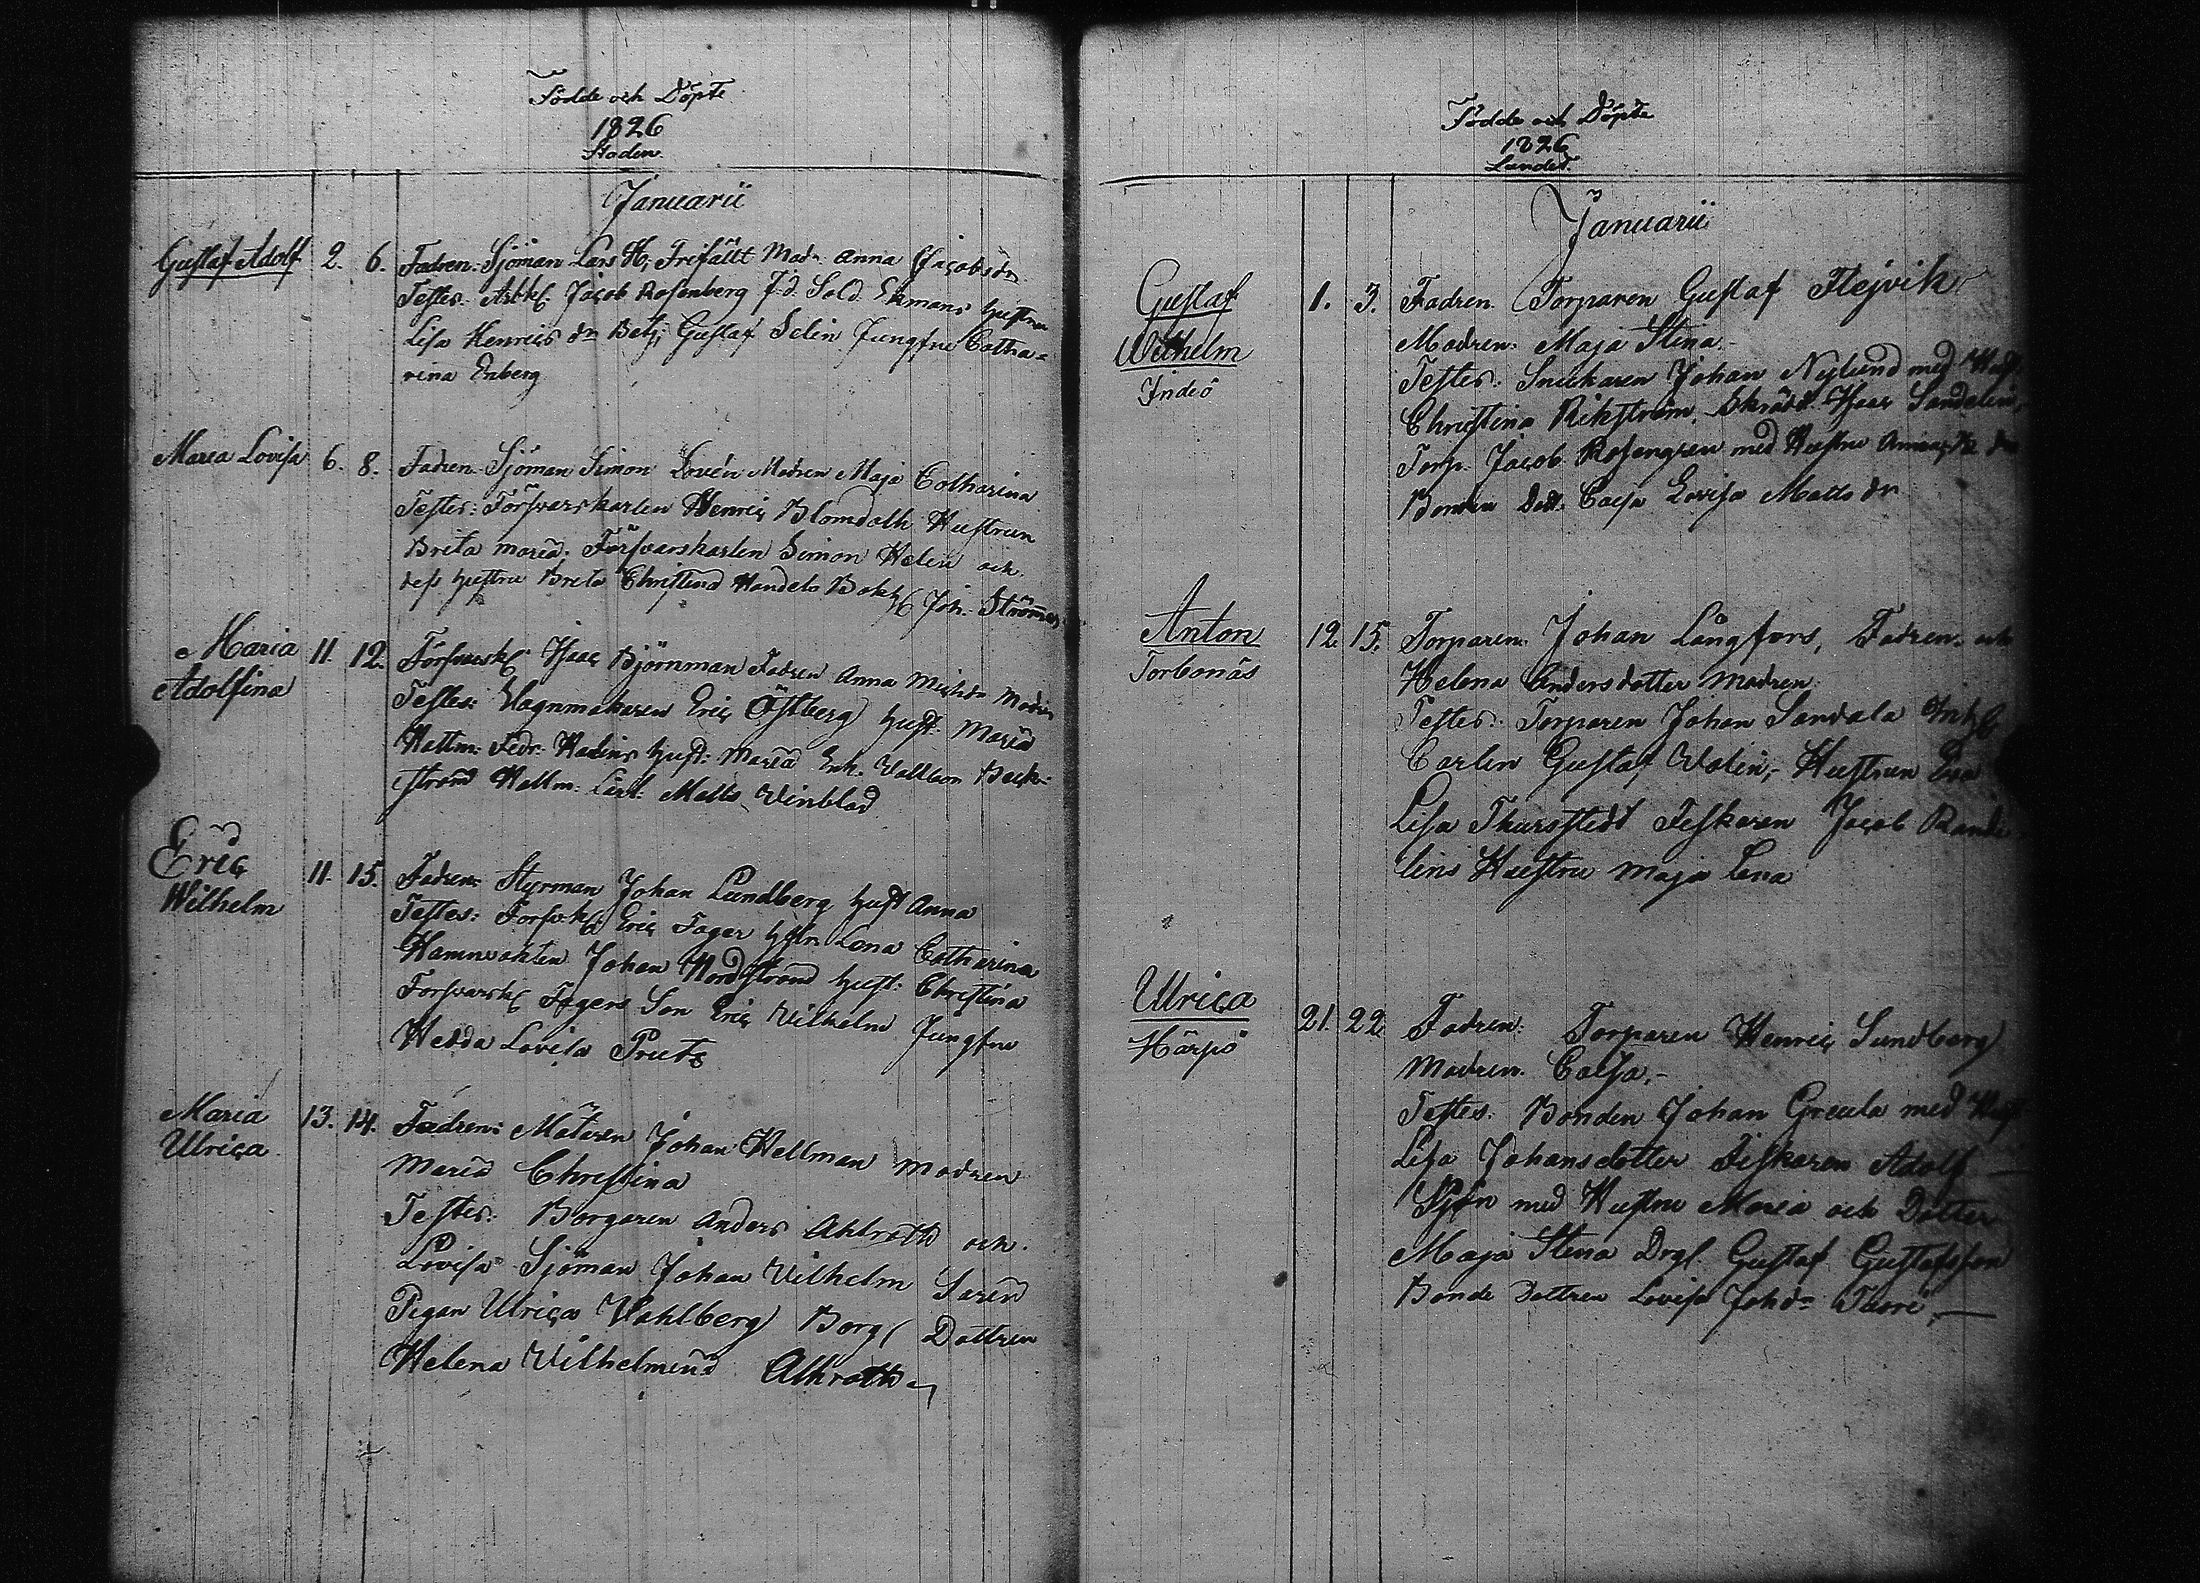 Födde och Döpte
1826
Staden
Januarii
Gustaf Adolf 2. 6. Fadren. Sjöman Lars H. Frifält Modr Anna Jacobsdr
Testes. Arbk. Jacob Rosenberg f.d. Sold. Ekmans hustru
Lisa Henricsdr Betj. Gustaf Selin Jungfru Catha-
rina Enberg
Maria Lovisa 6. 8. Fadren. Sjöman Simon Lovén Modren Maja Catharina
Testes: Försvarskarlen Henric Blomdath Hustrun
Brita Maria. Försvarskarlen Simon Helin och
dess hustru Brita Christina Handels Bokh. Joh. Ströman
Maria
Adolfina 11. 12. Försvarsk. Isaac Björnman Fadren Anna Michdr Modren
Testes: Vagnmakaren Eric Östberg hust. Maria
Hattm. Fedr. Hadins hust: Maria Enk. Back-
ström Hattm: Lärl: Matts Vinblad
Eric
Wilhelm 11. 15. Fadren Styrman Johan Lundberg hust Anna
Testes: Forsvk. Eric Fager hstn Lena Catharina
Hamnvakten Johan Nordström hust: Christina
Forsvarsk. Fagers Son Eric Vilhelm Jungfru
Hedda Lovisa Prutz
Maria
Ulrica 13. 14. Fadren: Mätaren Johan Hellman Modren
Maria Christina
Testes: Borgaren Anders Ahlroth och
Lovisa Sjöman Johan Vilhelm Sarén
Pigan Ulrica Wahlberg Borg. Dottren
Helena Vilhelmina Alhroth
Födde och Döpte
1826
Landet.
Januarii
Gustaf
Wilhelm
Indiö 1. 3. Fadren. Torparen Gustaf Flejvik
Modren. Maja Stina.
Testes: Snickaren Johan Nylund med Hust.
Christina Rikström. Skrädd. Isaac Sandelin,
Torp. Jacob Rosengren med Hustru
Bonden Dott. Caisa Lovisa Matts dr
Anton
Torbonäs 12. 15. Torparen. Johan Långfors, Fadren. och
Helena Andersdotter Modren.
Testes: Torparen Johan Sandala
Carlen Gustaf Walin, Hustrun Eva
Lisa Thursstedt Fiskaren Jacob Rande-
lins Hustru Maja Lena
Ulrica
Härpö 21. 22. Fadren. Torparen Henric Sundberg
Modren. Caisa.
Testes. Bonden Johan Greula med Hust
Lisa Johansdotter Fiskaren Adolf
Sjön med Hustru Maria och Dotter
Maja Stina Drgl. Gustaf Gustafsson
Bonde Dottren Lovisa Johdr